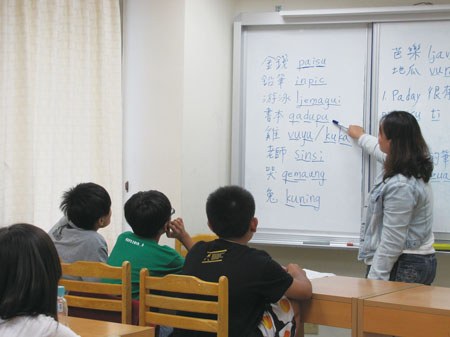 金錢 paisu
鉛筆 inpis
游泳 ljemagui
書本 qadupu
雞 vuyu/kuka
老師 sinsi
哭 qemaang
兔 kuning
芭樂 ljav
地瓜 vur
1. Paday 很有
su ti